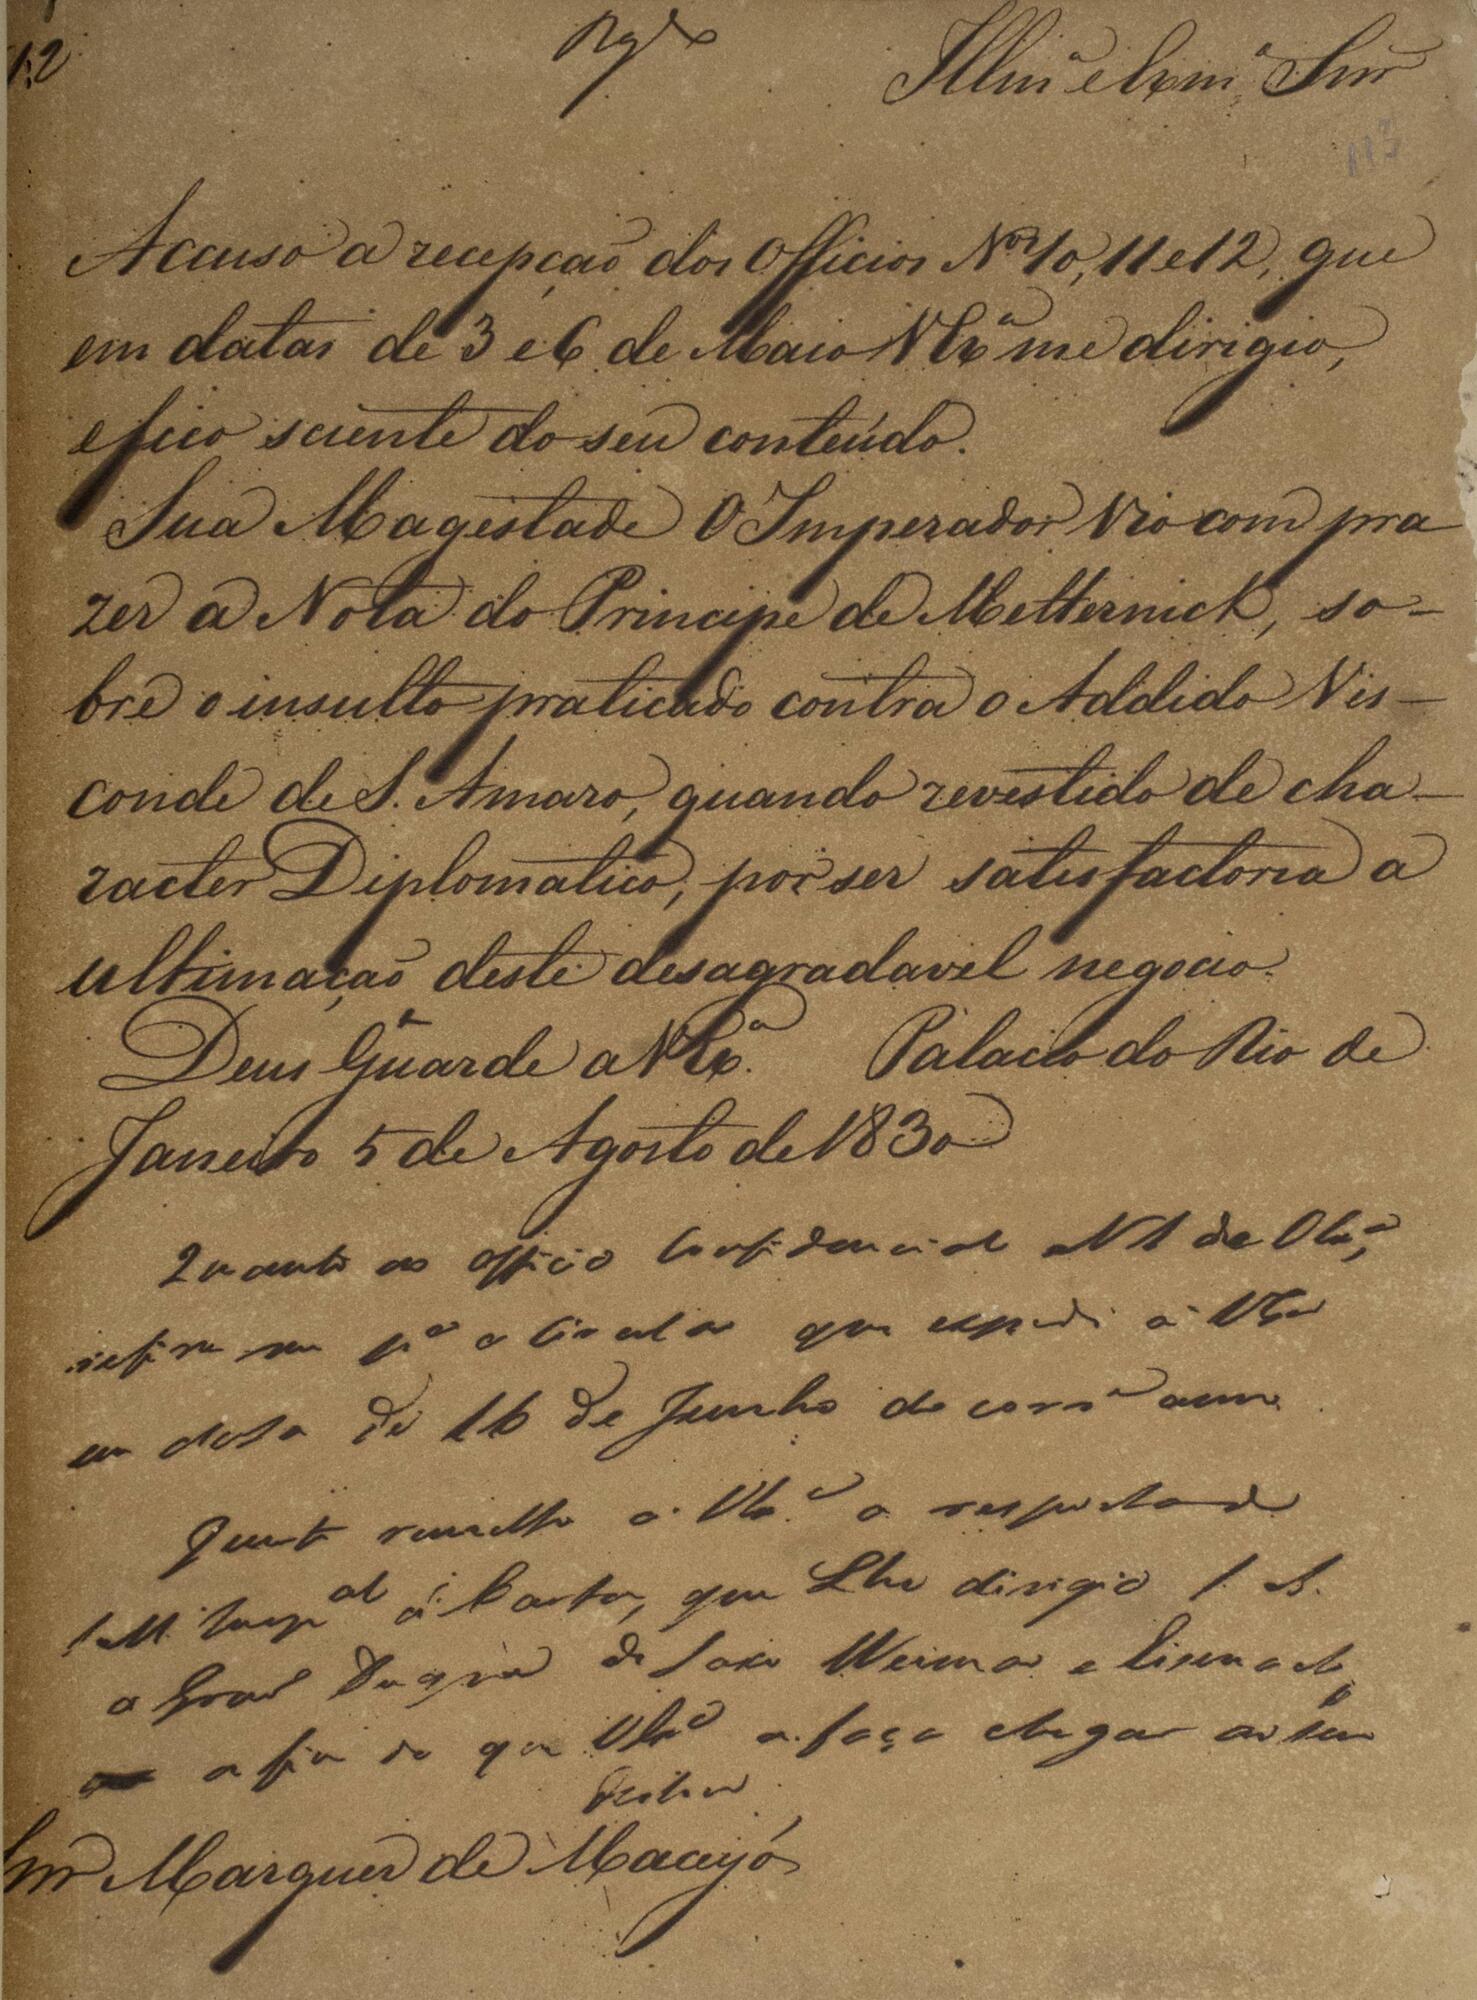 12
Rg.do
Illm.o e Exm.o Snr
113
Accuso a recepção dos Officios Nos 10, 11 e 12, que
em datas de 3 e 6 de Maio V Ex.a me dirigio,
e fico sciente do seu conteúdo.
Sua Magestade O Imperador Vio com pra
zer a Nota do Principe de Metternick, so-
bre o insulto praticado contra o Addido Vis-
conde de S. Amaro, quando revestido de cha-
racter Diplomatico, por ser satisfactoria a
ultimação deste desagradavel negocio.
Deus Guarde a V Ex.a Palacio do Rio de
Janeiro 5 de Agosto de 1830
Quanto ao officio Confidencial N 1 de VEx.a,
refiro me p.a a Circular que expedi a VEx.a
em data de 16 de Junho do corr.e anno.
Junto remetto a VEx.a a resposta de
S. M. Imp.al á Carta, que Lhe dirigio S. A.
o Gram Duque de Saxe Weimar e Eisenach,
a fim de que VEx.a a faça chegar ao seu
destino
Snr Marquez de Maceyó